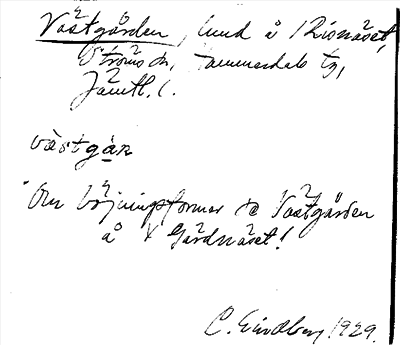 Västgården, lund å Risnäset,
Ströms sn, Hammerdals tg,
Jämtl. l.
västgàṛn
Om böjningsformer se Västgården
å Gårdnäset!
C. Lindberg 1929.